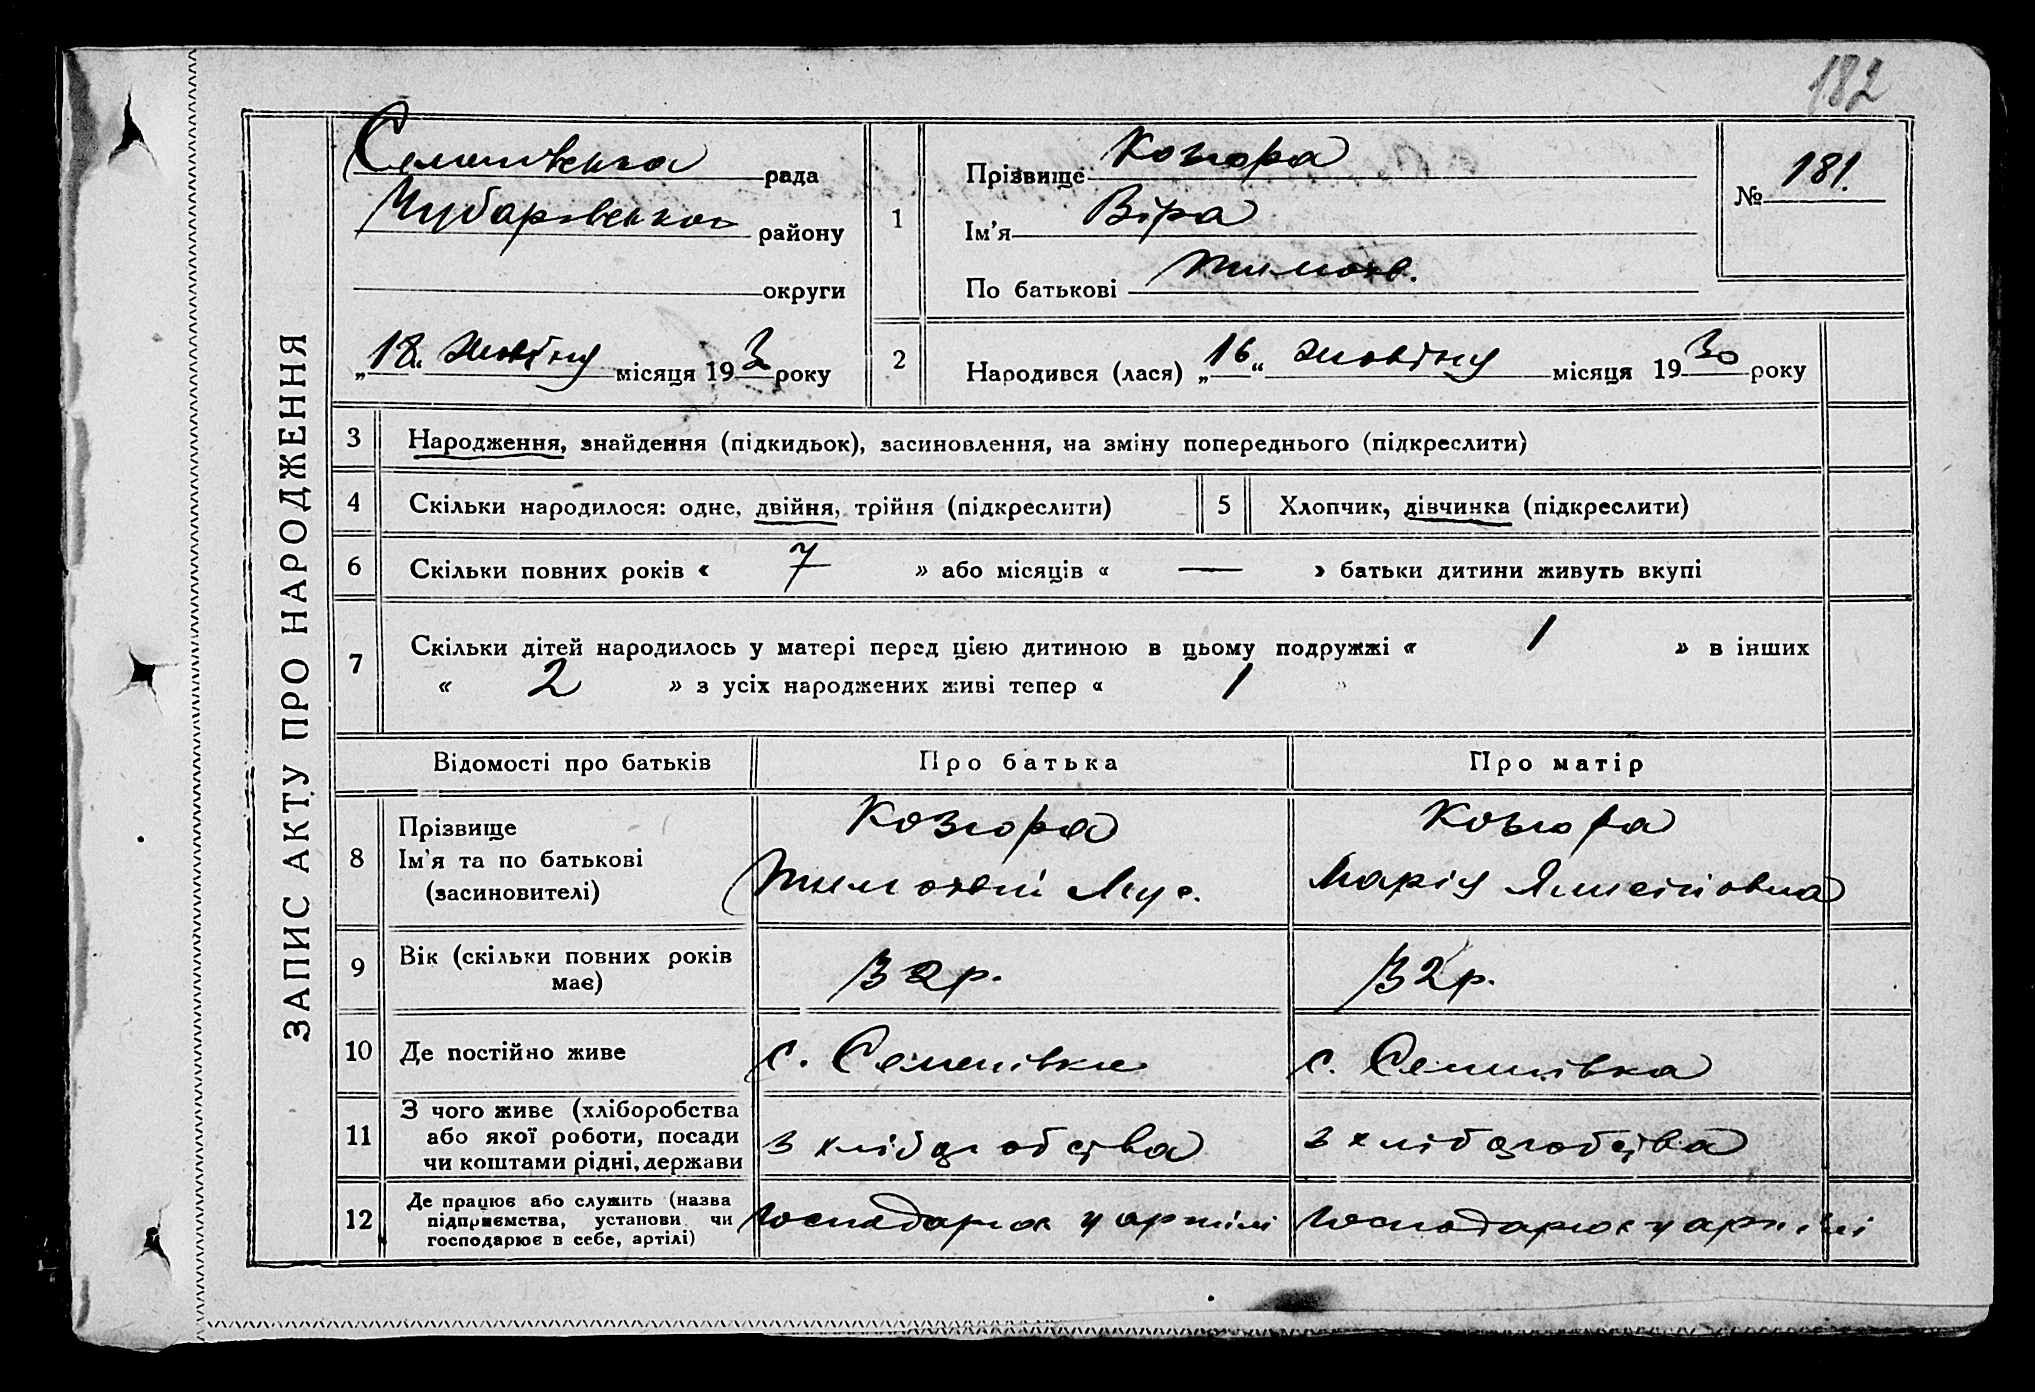 182
ЗАПИС АКТУ ПРО НАРОДЖЕННЯ
Семенівська рада
Чубарівського району
округи
„18“ жовтня місяця 193 року
1
Прізвище Козюра
Ім'я Віра
По батькові Тимофв.
№ 181.
2
Народився (лася) „16“ жовтня місяця 1930 року
3 Народження, знайдення (підкидьок), засиновлення, на зміну попереднього (підкреслити)
4 Скільки народилося: одне, двійня, трійня (підкреслити)
5 Хлопчик, дівчинка (підкреслити)
6 Скільки повних років « 7 » або місяців « — » батьки дитини живуть вкупі
7 Скільки дітей народилось у матері перед цією дитиною в цьому подружжі « 1 » в інших
« 2 » з усіх народжених живі тепер « 1 »
Відомості про батьків Про батька Про матір
8 Прізвище Козюра Козюра
Ім'я та по батькові Тимофій Мус. Марія
(засиновителі)
9 Вік (скільки повних років має) 32 р. 32 р.
10 Де постійно живе с. Семенівка с. Семенівка
11 З чого живе (хліборобства
або якої роботи, посади
чи коштами рідні, держави з хліборобства з хліборобства
12 Де працює або служить (назва
підприємства, установи чи
господарює в себе, артілі) господарює у артілі господарює у артілі